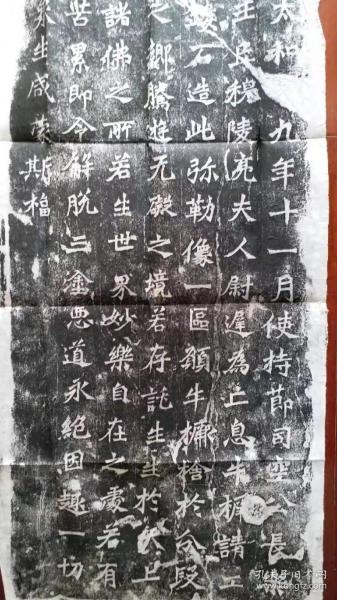 太和　九年十一月使持節司空公長
王丘穆陵亮夫人尉遲為亡息牛橛請工
鏤石造此弥勒像一區願牛橛捨於分段
之鄉騰遊无礙之境若存託生生於天上
諸佛之所若生世界妙樂自在之處若有
苦累即令解脫三塗惡道永絕因趣一切
眾生咸蒙斯福
孔夫子旧书网
kongfz.com